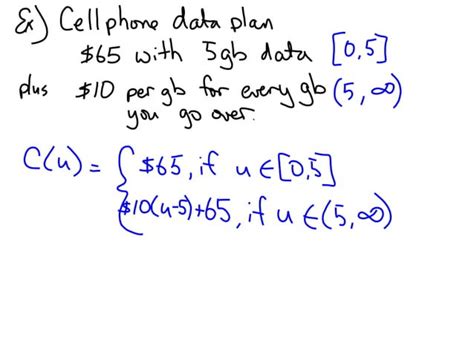 Ex) Cellphone data plan
$65 with 5gb data [0,5]
plus $10 per gb for every gb (5, ∞)
you go over.
C(u) = { $65, if u ∈ [0,5]
$10(u-5)+65, if u ∈ (5, ∞)